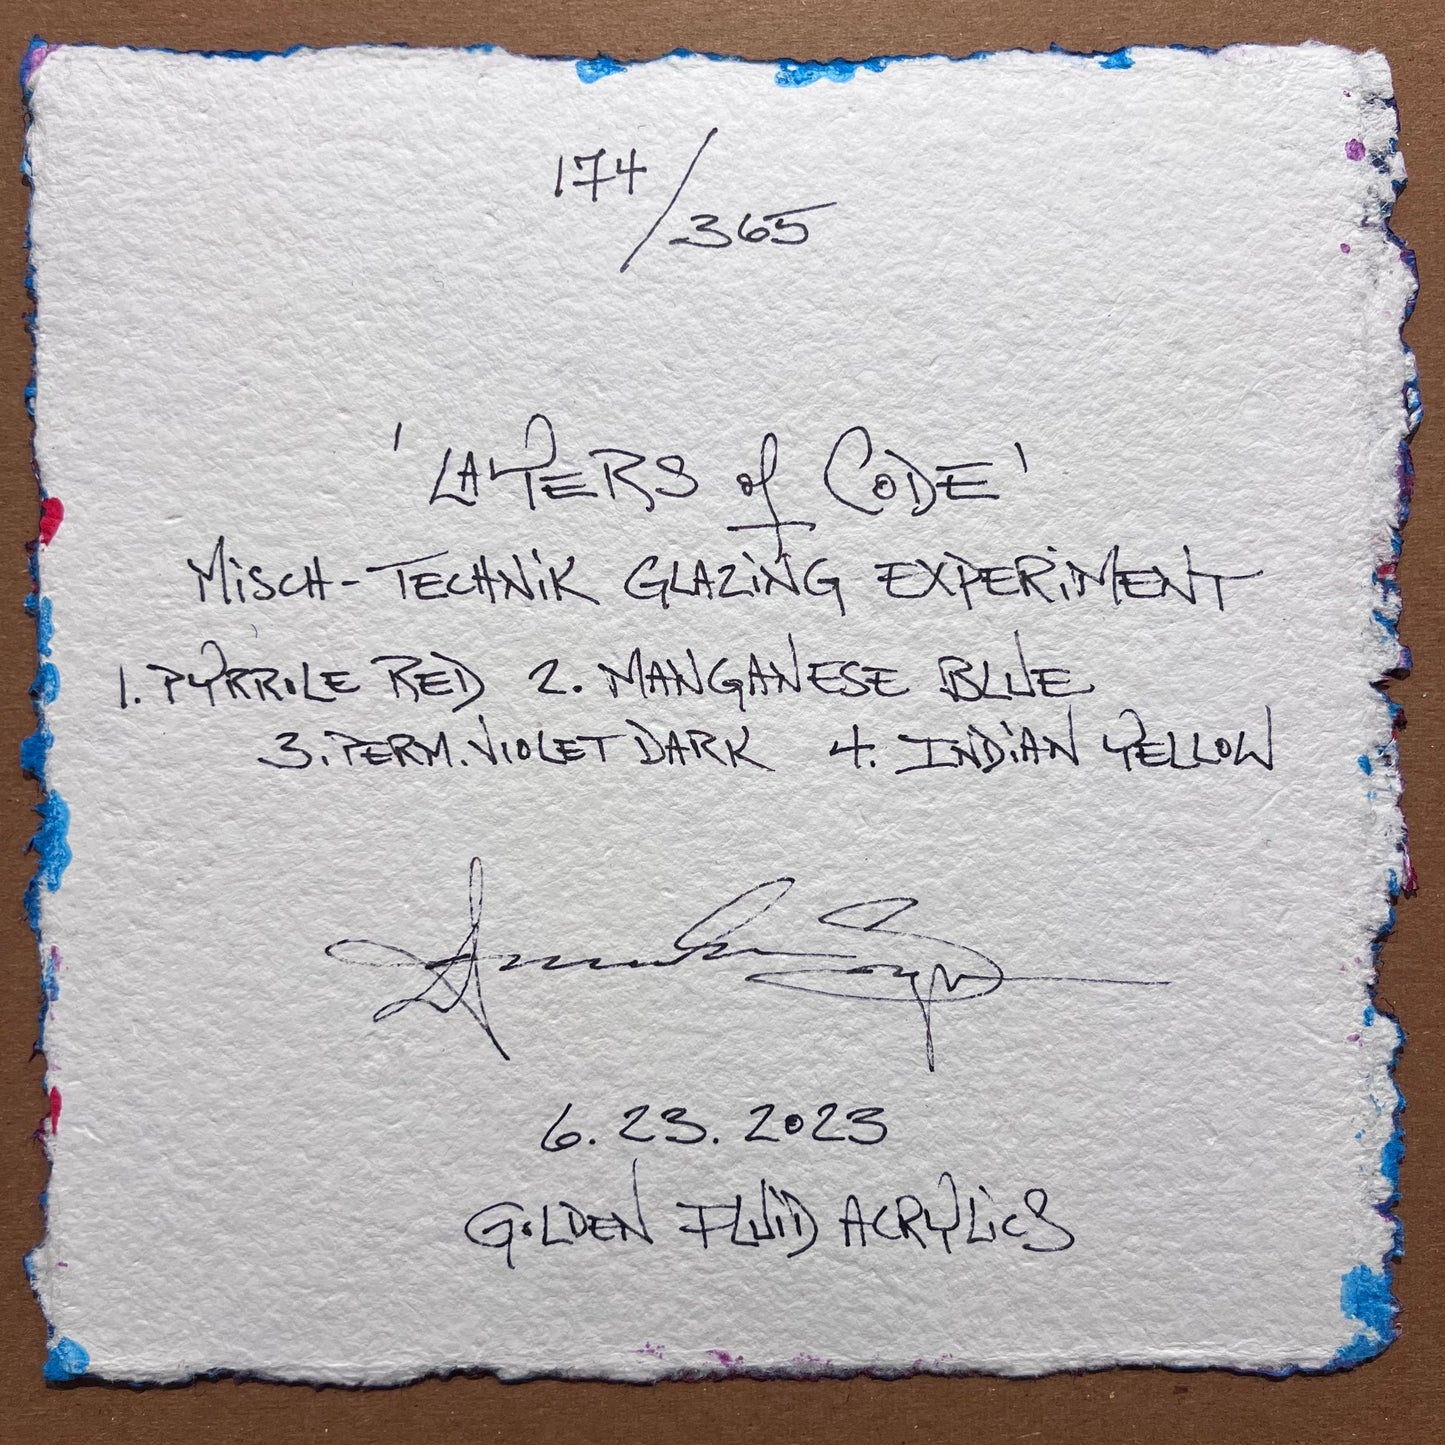 174/365
'LAYERS of CODE'
MiSCH-TECHNiK GLAZiNG EXPERiMENT
1. PYRRiLE RED 2. MANGANESE BLUE
3. PERM. ViOLET DARK 4. INDiAN YELLOW
6.23.2023
GOLDEN FLUiD ACRYLiCS